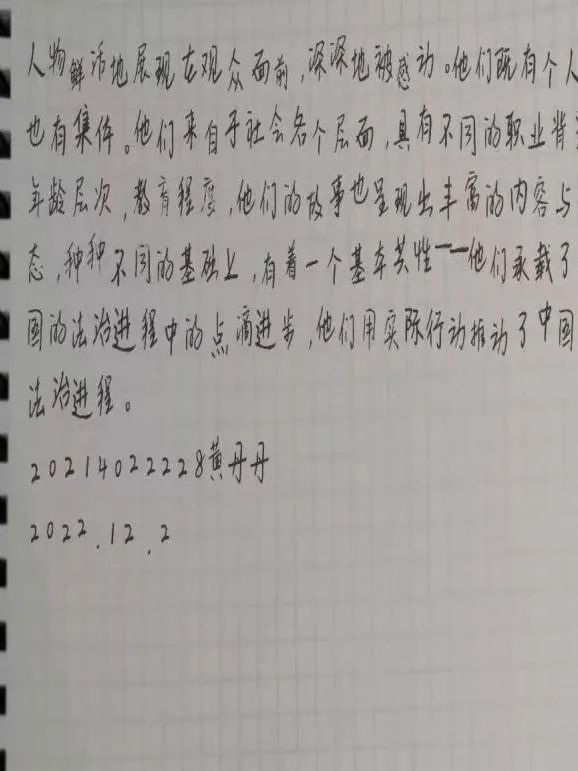 人物鲜活地展现在观众面前,深深地被感动。他们既有个人
也有集体。他们来自于社会各个层面,具有不同的职业背
年龄层次,教育程度,他们的故事也呈现出丰富的内容与
态,种种不同的基础上,有着一个基本共性——他们承载了
国的法治进程中的点滴进步,他们用实际行动推动了中国
法治进程。
20214022228黄丹丹
2022.12.2